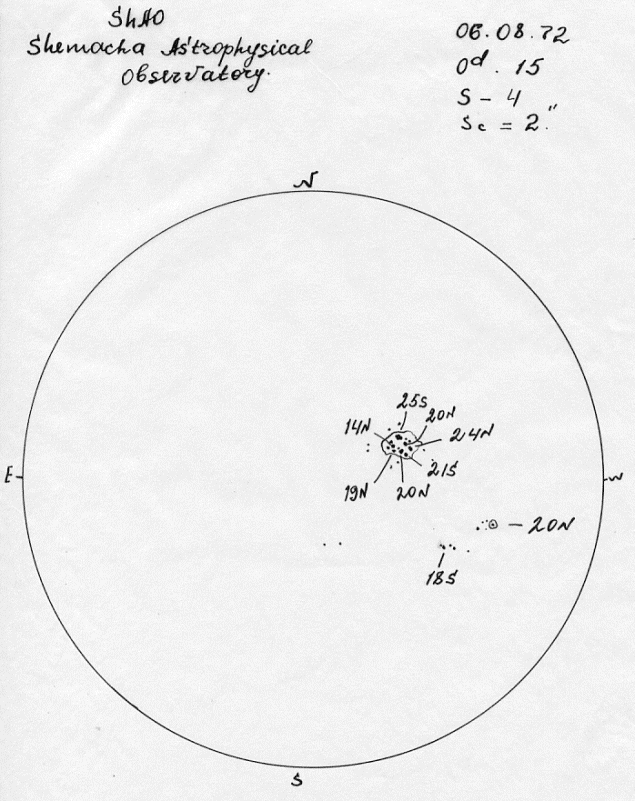 ShAO
Shemacha Astrophysical
Observatory.
06.08.72
0d. 15
S - 4
Sc = 2".
N
25S
20N
14N
24N
21S
19N
20N
E
W
20N
18S
S